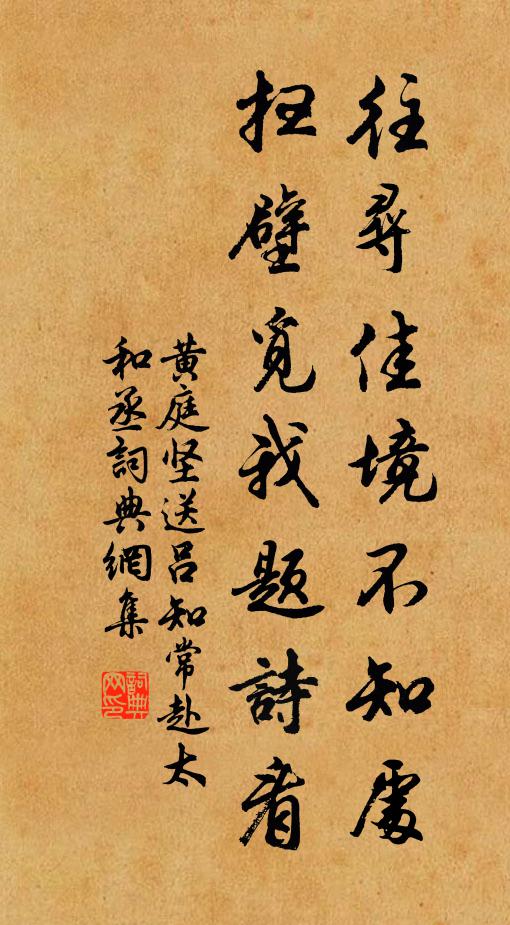 往尋佳境不知處
扫壁覓我题詩看
黄庭坚送吕知常赴太
和丞詞典網集
詞典網印